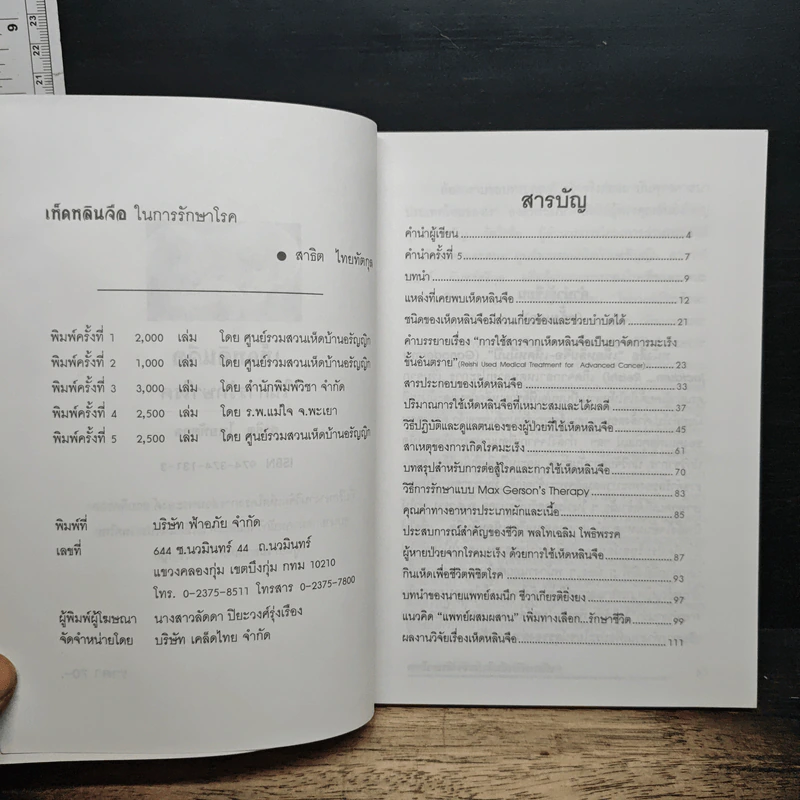 9
23
22
21
เห็ดหลินจือ ในการรักษาโรค
● สาธิต ไทยทัตกุล
พิมพ์ครั้งที่ 1 2,000 เล่ม โดย ศูนย์รวมสวนเห็ดบ้านอรัญญิก
พิมพ์ครั้งที่ 2 1,000 เล่ม โดย ศูนย์รวมสวนเห็ดบ้านอรัญญิก
พิมพ์ครั้งที่ 3 3,000 เล่ม โดย สำนักพิมพ์วิชา จำกัด
พิมพ์ครั้งที่ 4 2,500 เล่ม โดย ร.พ.แม่ใจ จ.พะเยา
พิมพ์ครั้งที่ 5 2,500 เล่ม โดย ศูนย์รวมสวนเห็ดบ้านอรัญญิก
พิมพ์ที่ บริษัท ฟ้าอภัย จำกัด
เลขที่ 644 ซ.นวมินทร์ 44 ถ.นวมินทร์
แขวงคลองกุ่ม เขตบึงกุ่ม กทม 10210
โทร. 0-2375-8511 โทรสาร 0-2375-7800
ผู้พิมพ์ผู้โฆษณา นางสาวลัดดา ปิยะวงศ์รุ่งเรือง
จัดจำหน่ายโดย บริษัท เคล็ดไทย จำกัด
สารบัญ
คำนำผู้เขียน 4
คำนำครั้งที่ 5 7
บทนำ 9
แหล่งที่เคยพบเห็ดหลินจือ 12
ชนิดของเห็ดหลินจือมีส่วนเกี่ยวข้องและช่วยบำบัดได้ 21
คำบรรยายเรื่อง “การใช้สารจากเห็ดหลินจือเป็นยาจัดการมะเร็ง
ขั้นอันตราย” (Reishi Used Medical Treatment for Advanced Cancer) 23
สารประกอบของเห็ดหลินจือ 33
ปริมาณการใช้เห็ดหลินจือที่เหมาะสมและได้ผลดี 37
วิธีปฏิบัติและดูแลตนเองของผู้ป่วยที่ใช้เห็ดหลินจือ 45
สาเหตุของการเกิดโรคมะเร็ง 61
บทสรุปสำหรับการต่อสู้โรคและการใช้เห็ดหลินจือ 70
วิธีการรักษาแบบ Max Gerson's Therapy 83
คุณค่าทางอาหารประเภทผักและเนื้อ 85
ประสบการณ์สำคัญของชีวิต พลโทเฉลิม โพธิพรรค
ผู้หายป่วยจากโรคมะเร็ง ด้วยการใช้เห็ดหลินจือ 87
กินเห็ดเพื่อชีวิตพิชิตโรค 93
บทนำของนายแพทย์สมนึก ชีวาเกียรติยิ่งยง 97
แนวคิด “แพทย์ผสมผสาน” เพิ่มทางเลือก...รักษาชีวิต 99
ผลงานวิจัยเรื่องเห็ดหลินจือ 111